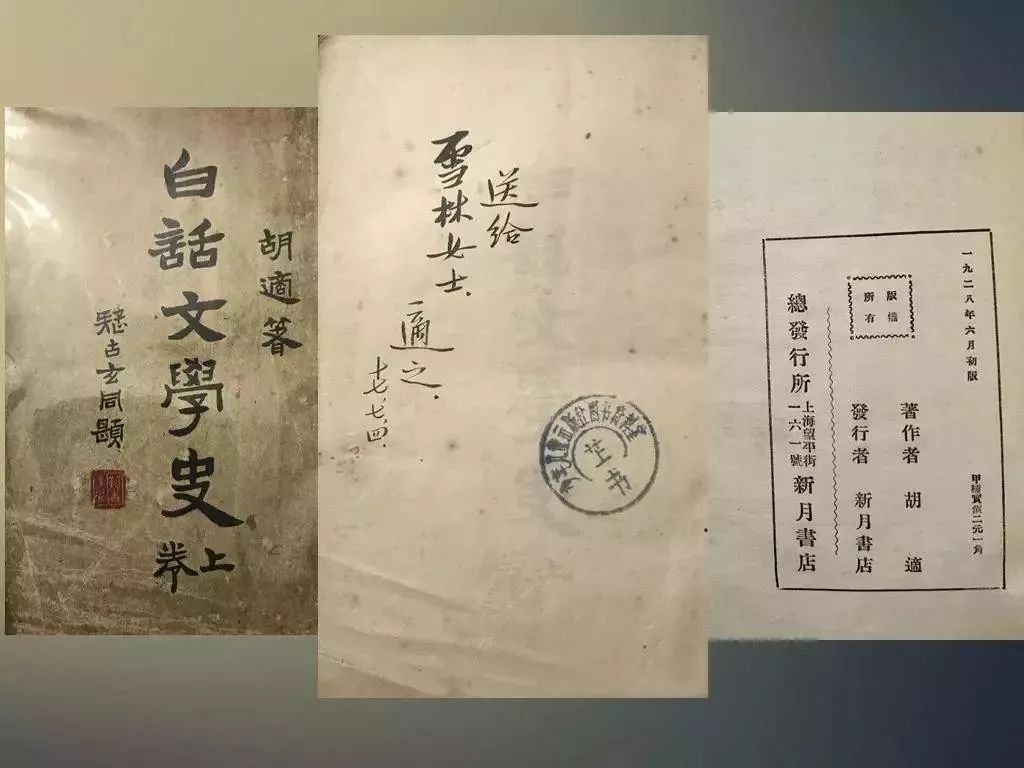 胡適箸
白話文學史
上卷
疑古玄同題
送給
雪林女士.
適之.
十七,七,四.
一九二八年六月初版
甲種實價二元一角
版權
所有
著作者 胡適
發行者 新月書店
總發行所 上海望平街一六一號 新月書店